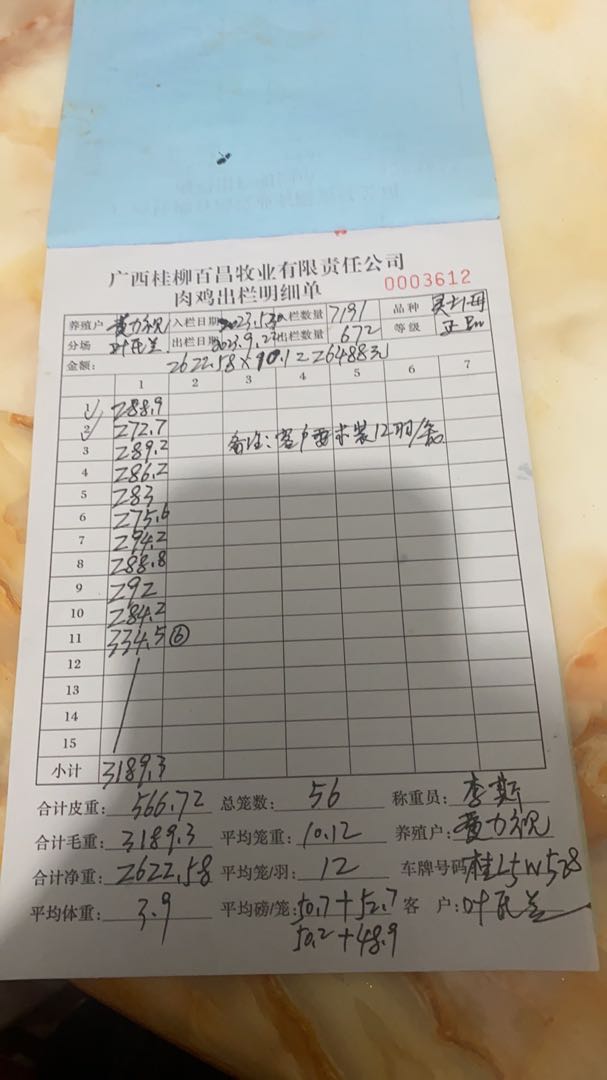 广西桂柳百昌牧业有限责任公司
肉鸡出栏明细单 0003612
养殖户 黄力观 入栏日期 2023.5.30 入栏数量 7191 品种
分场 叶民兰 出栏日期 2023.9.27 出栏数量 672 等级 正品
金额: 2622.58×10.1=26488元
1 2 3 4 5 6 7
1 288.9
2 272.7
3 289.2 备注:客户要求装12羽/笼
4 286.2
5 283
6 275.6
7 294.2
8 288.8
9 292
10 284.2
11 334.5 ⑥
12
13
14
15
小计 3189.3
合计皮重: 566.72 总笼数: 56 称重员: 李斯
合计毛重: 3189.3 平均笼重: 10.12 养殖户: 黄力观
合计净重: 2622.58 平均笼/羽: 12 车牌号码: 桂L5W528
平均体重: 3.9 平均磅/笼: 50.7+52.7 客 户: 叶民兰
50.2+48.9